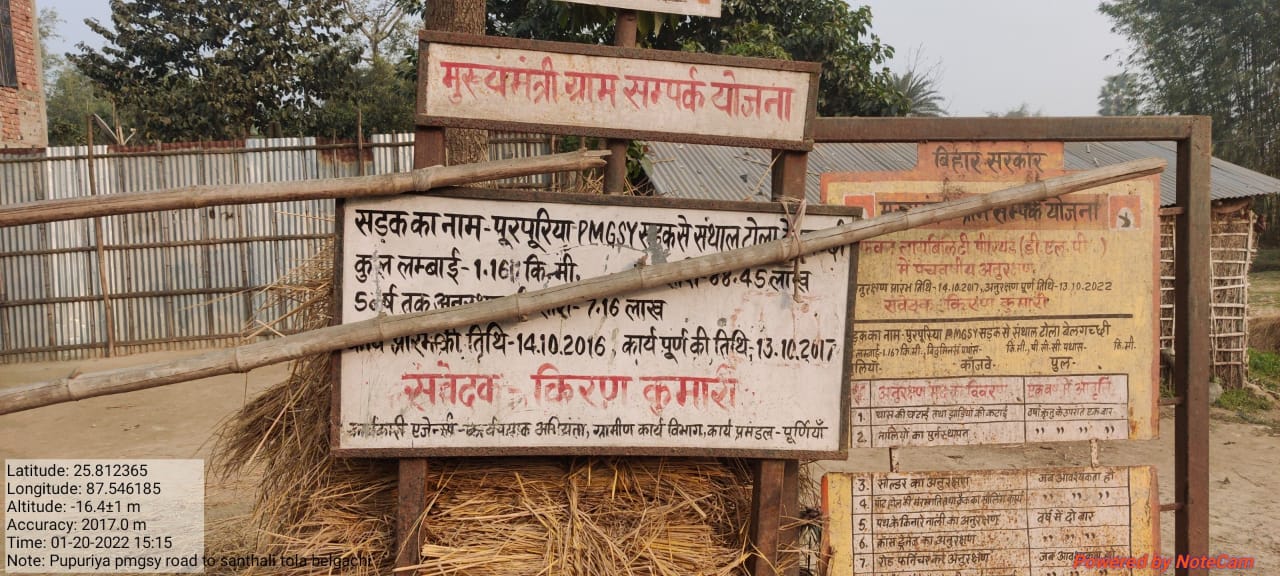 मुख्यमंत्री ग्राम सम्पर्क योजना
सड़क का नाम-पूरपूरिया PMGSY सड़क से संथाल टोला
कुल लम्बाई- 1.16 कि.मी. 68.45 लाख
5 वर्ष तक 7.16 लाख
कार्य प्रारम्भ की तिथि-14.10.2016, कार्य पूर्ण की तिथि-13.10.2017
संवेदक- किरण कुमारी
कार्यकारी एजेन्सी-कार्यपालक अभियंता, ग्रामीण कार्य विभाग, कार्य प्रमंडल-पूर्णियाँ
बिहार सरकार
ग्राम सम्पर्क योजना
लायबिलिटी पीरियड (डी.एल.पी.)
में पंचवर्षीय अनुरक्षण
अनुरक्षण प्रारंभ तिथि-14.10.2017, अनुरक्षण पूर्ण तिथि-13.10.2022
संवेदक-किरण कुमारी
सड़क का नाम-पुरपूरिया PMGSY सड़क से संथाल टोला बेलगच्छी
लम्बाई-1.167 कि.मी. कि.मी., पी.सी.सी. पथांश- कि.मी.
पुल-
अनुरक्षण मद का विवरण एक वर्ष में आवृति
1. घास की कटाई तथा झाड़ियों की कटाई वर्षा ऋतु के उपरांत एक बार
2. नालियों का पुर्नस्थापन " " " "
3. सोल्डर का अनुरक्षण जब आवश्यकता हो
4. " "
5. पथ के किनारे नाली का अनुरक्षण वर्ष में दो बार
6. क्रास ड्रेनेज का अनुरक्षण " " "
7. रोड फर्निचर का अनुरक्षण जब
Latitude: 25.812365
Longitude: 87.546185
Altitude: -16.4±1 m
Accuracy: 2017.0 m
Time: 01-20-2022 15:15
Note: Pupuriya pmgsy road to santhali tola belgachi
Powered by NoteCam